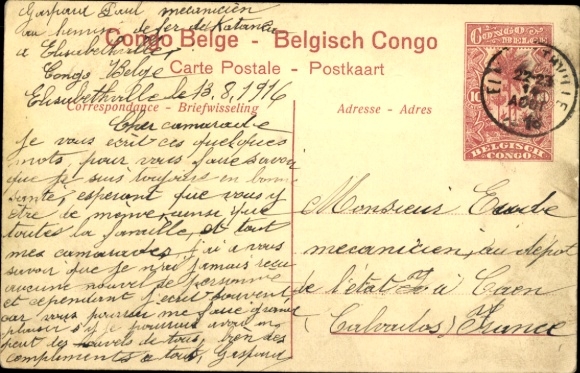 Gaspard Paul mecanicien
au chemin de fer du Katanga
a Elisabethville
Congo Belge
Elisabethville le 13.8.1916
Congo Belge - Belgisch Congo
Carte Postale - Postkaart
Correspondance - Briefwisseling
Adresse - Adres
Cher camarade
Je vous ecrit ces quelques
mots, pour vous faire savoir
que je suis toujours en bonne
santé, esperant que vous y
etre de meme, ainsi que
toutes la famille, et tout
mes camarades, j'ai a vous
savoir que je n'ai jamais recu
aucune nouvel de personne
et cependant j'ecrit souvent,
car vous pourriez me faire grand
plaisir s'y je pourrais avoir un
peut de nouvels de tous, bon des
complements a tous, Gaspard
Monsieur
mecanicien, au depot
de l'état à Caen
(Calvados) France
CONGO
BELGE
10
BELGISCH
CONGO
22-23
AOUT